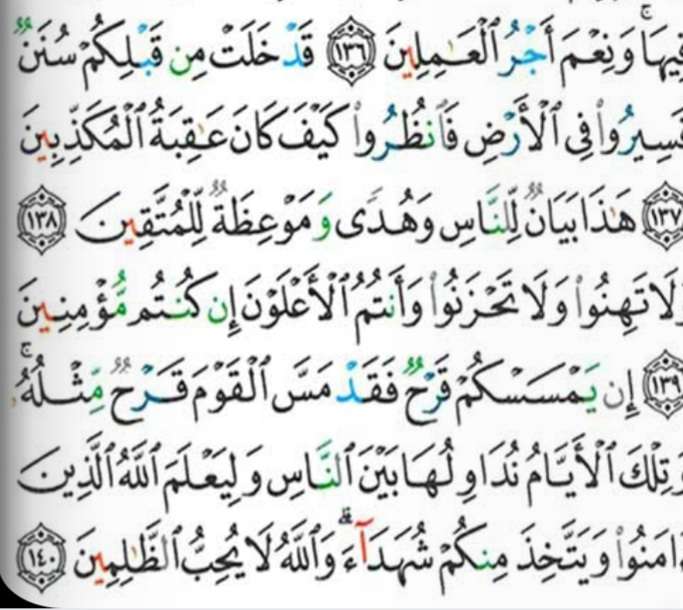 فِيهَا ۚ وَنِعْمَ أَجْرُ الْعَـٰمِلِينَ ﴿١٣٦﴾ قَدْ خَلَتْ مِن قَبْلِكُمْ سُنَنٌ
فَسِيرُوا۟ فِى الْأَرْضِ فَانظُرُوا۟ كَيْفَ كَانَ عَـٰقِبَةُ الْمُكَذِّبِينَ
﴿١٣٧﴾ هَـٰذَا بَيَانٌ لِّلنَّاسِ وَهُدًى وَمَوْعِظَةٌ لِّلْمُتَّقِينَ ﴿١٣٨﴾
وَلَا تَهِنُوا۟ وَلَا تَحْزَنُوا۟ وَأَنتُمُ الْأَعْلَوْنَ إِن كُنتُم مُّؤْمِنِينَ
﴿١٣٩﴾ إِن يَمْسَسْكُمْ قَرْحٌ فَقَدْ مَسَّ الْقَوْمَ قَرْحٌ مِّثْلُهُ ۚ
وَتِلْكَ الْأَيَّامُ نُدَاوِلُهَا بَيْنَ النَّاسِ وَلِيَعْلَمَ اللَّهُ الَّذِينَ
ءَامَنُوا۟ وَيَتَّخِذَ مِنكُمْ شُهَدَآءَ ۗ وَاللَّهُ لَا يُحِبُّ الظَّـٰلِمِينَ ﴿١٤٠﴾